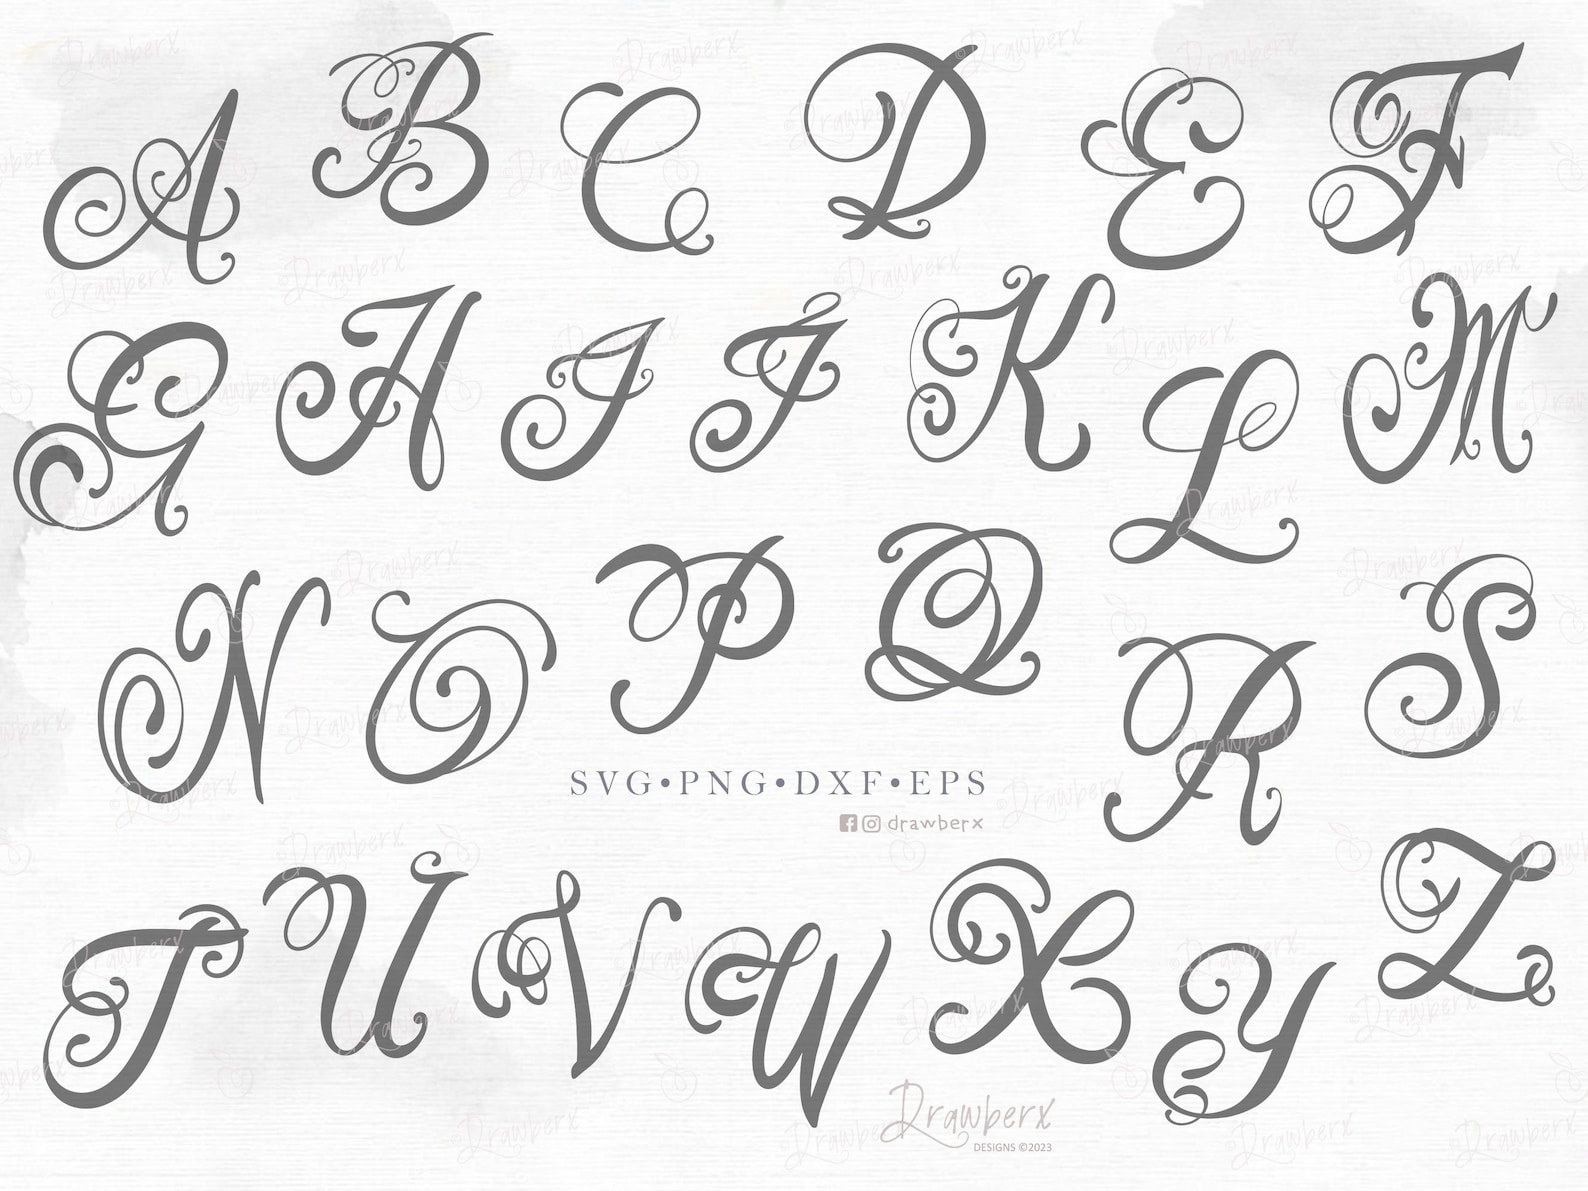 A B C D E F
G H I J K L M
N O P Q R S
SVG•PNG•DXF•EPS
drawberx
T U V W X Y Z
Drawberx
DESIGNS ©2023